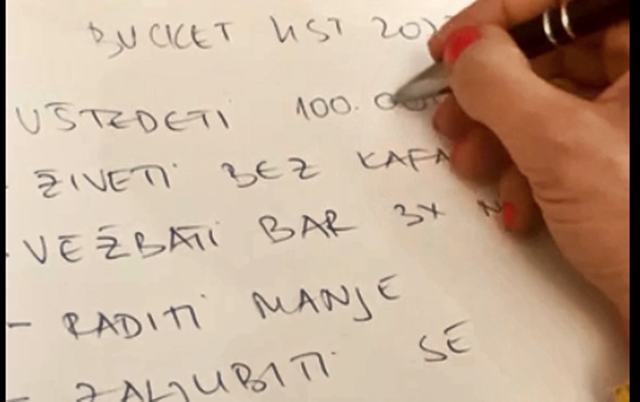 BUCKET LIST 202
UŠTEDETI 100.000
- ŽIVETI BEZ KAFA
- VEŽBATI BAR 3X N
- RADITI MANJE
- ZALJUBITI SE